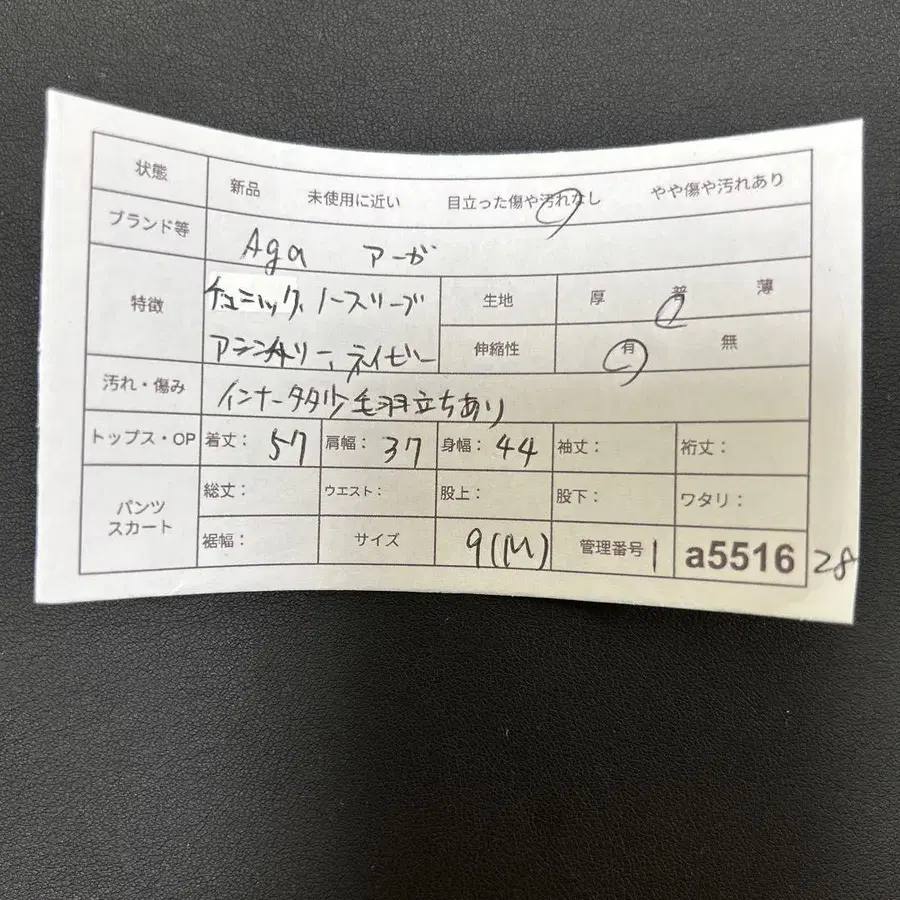 状態 新品 未使用に近い 目立った傷や汚れなし やや傷や汚れあり
ブランド等 Aga アーガ
特徴 チュニック、ノースリーブ
アシンメトリー、ネイビー
生地 厚 普 薄
伸縮性 有 無
汚れ・傷み 毛羽立ちあり
トップス・OP 着丈: 57 肩幅: 37 身幅: 44 袖丈: 裄丈:
パンツ スカート
総丈: ウエスト: 股上: 股下: ワタリ:
裾幅: サイズ 9(M) 管理番号 a5516 28